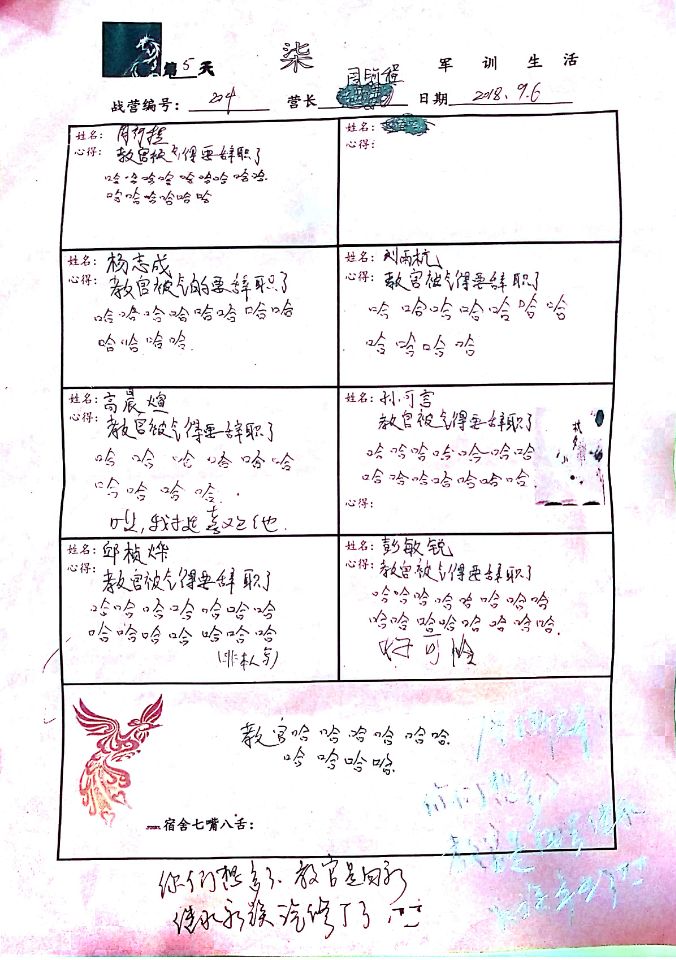 第5天 柒 军训生活
战营编号：224 营长 日期 2018.9.6
姓名：
心得：教官被气得要辞职了
哈哈哈哈哈哈哈哈哈
哈哈哈哈哈哈
姓名：
心得：
姓名：杨志成
心得：教官被气的要辞职了
哈哈哈哈哈哈哈哈
哈哈哈哈.
姓名：刘雨杭
心得：教官被气得要辞职了
哈哈哈哈哈哈哈
哈哈哈哈
姓名：高晨煊
心得：教官被气得要辞职了
哈哈哈哈哈哈
哈哈哈哈.
姓名：孙可言
教官被气得要辞职了
哈哈哈哈哈哈哈
哈哈哈哈哈哈哈哈
心得：
姓名：邱桢烨
心得：教官被气得要辞职了
哈哈哈哈哈哈哈
哈哈哈哈哈哈哈
(非本人写)
姓名：彭敏锐
心得：教官被气得要辞职了
哈哈哈哈哈哈哈哈
哈哈哈哈哈哈哈哈.
好可怜
教官哈哈哈哈哈哈
哈哈哈哈
宿舍七嘴八舌：
你们想多了、教官是回